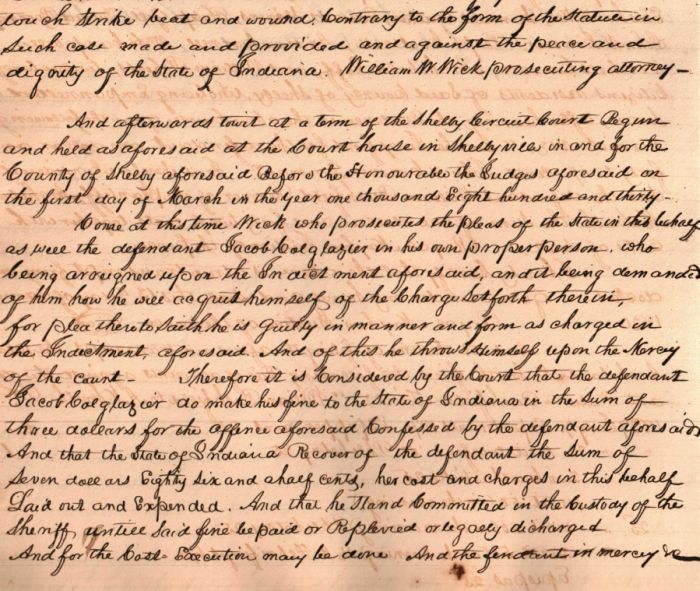 touch Strike beat and wound. Contrary to the form of the Statute in
Such case made and provided and against the peace and
dignity of the State of Indiana. William W. Wick prosecuting attorney -
And afterwards towit at a term of the Shelby Circuit Court Begun
and held as aforesaid at the Court house in Shelbyville in and for the
County of Shelby aforesaid Before the Honourable the Judges aforesaid on
the first day of March in the Year one thousand Eight hundred and thirty -
Come at this time Wick who prosecutes the pleas of the State in this behalf
as well the defendant Jacob Colglazier in his own proper person. who
being arraigned upon the Indictment aforesaid, and it being demanded
of him how he will acquit himself of the Charge Set forth therein,
for plea thereto Saith he is Guilty in manner and form as charged in
the Indictment, aforesaid. And of this he throws Himself upon the Mercy
of the court - Therefore it is Considered by the Court that the defendant
Jacob Colglazier do make his fine to the State of Indiana in the Sum of
three dollars for the offence aforesaid Confessed by the defendant aforesaid
And that the State of Indiana Recover of the defendant the Sum of
Seven dollars Eighty Six and a half cents, her cost and charges in this behalf
Laid out and Expended. And that he Stand Committed in the Custody of the
Sheriff untill Said fine be paid or Replevied or legally dicharged
And for the Cost Execution may be done And the fendant in mercy &c